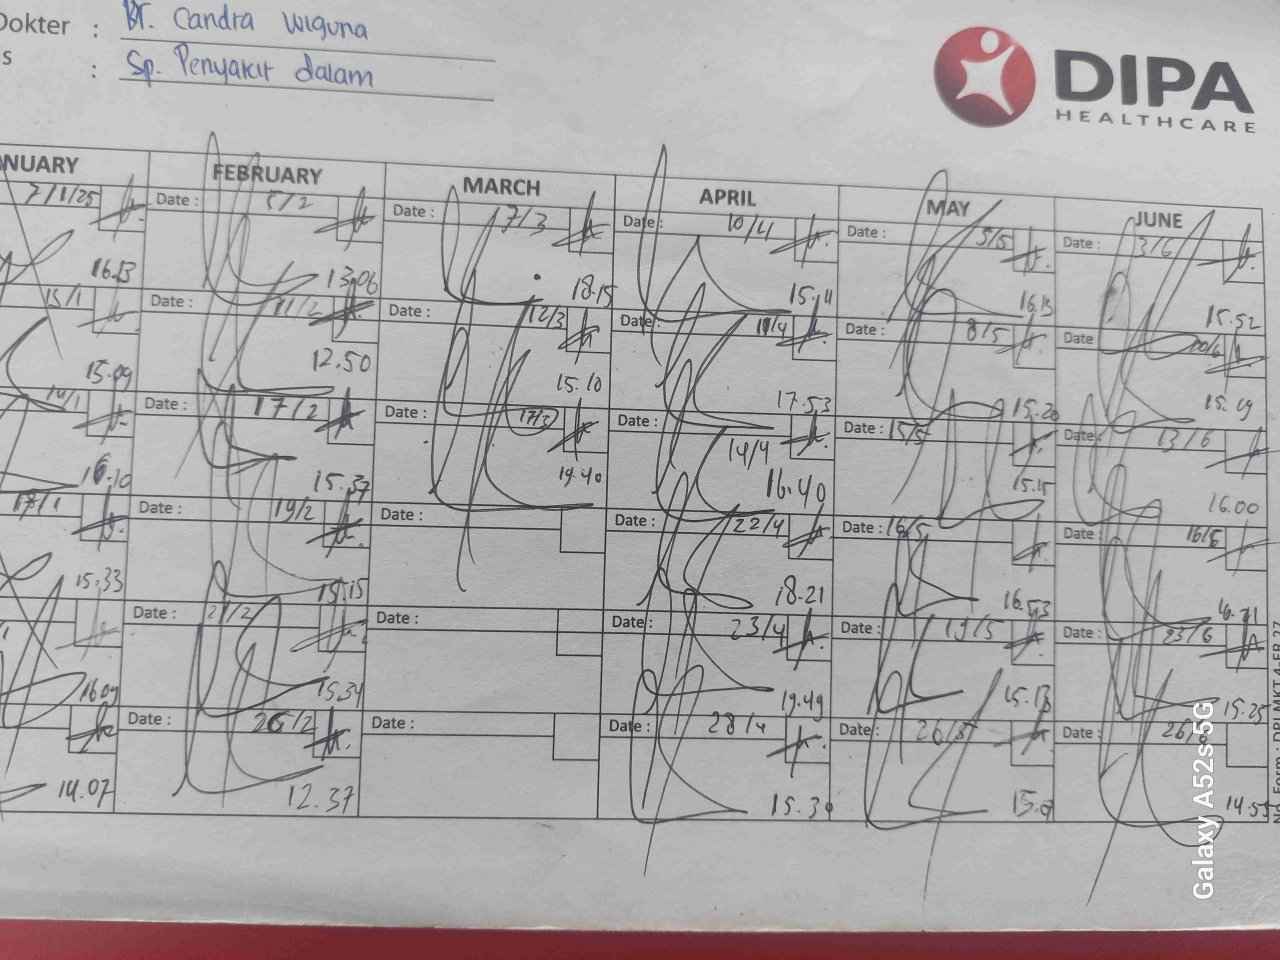 Dokter : Dr. Candra Wiguna
s : Sp. Penyakit dalam
DIPA
HEALTHCARE
NUARY FEBRUARY MARCH APRIL MAY JUNE
7/1/25 Date : 5/2 Date : 7/3 Date : 10/4 Date : 5/5 Date : 3/6
16.13 13.06 18.15 15.11 16.13 15.52
15/1 Date : 11/2 Date : 12/3 Date : 11/4 Date : 8/5 Date 10/6
15.09 12.50 15.10 17.53 15.20 15.19
Date : 17/2 Date : 17/3 Date : 14/4 Date : 15/5 Date : 13/6
16.10 15.37 19.40 16.40 15.15 16.00
17/1 Date : 19/2 Date : Date : 22/4 Date : 16/5 Date : 16/6
15.33 15.15 18.21 16.53
Date : 21/2 Date : Date : 23/4 Date : 19/5 Date : 23/6
16.09 15.34 19.49 15.13 15.25
Date : 26/2 Date : Date : 28/4 Date : 26/5 Date : 26/6
14.07 12.37 15.30 14.55
Galaxy A52s 5G